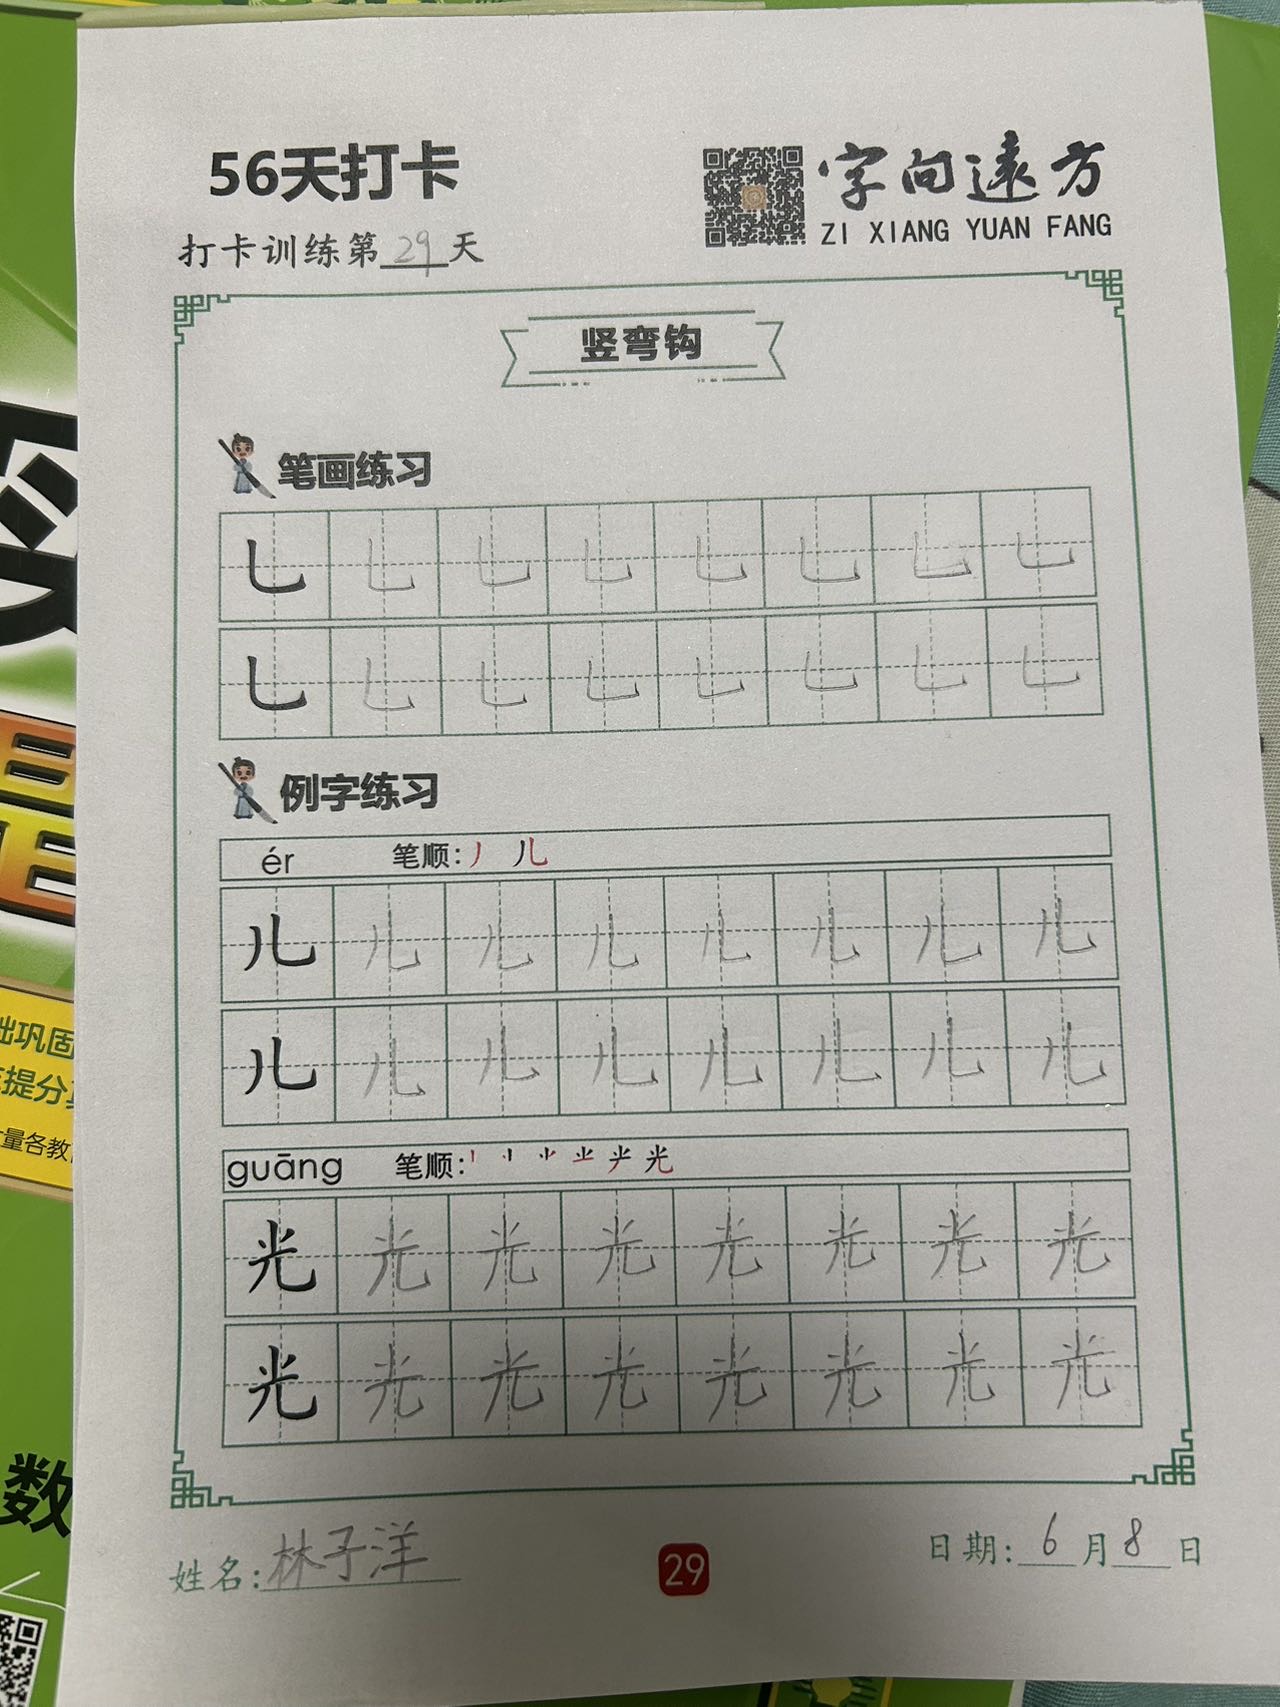 56天打卡
字向遠方
ZI XIANG YUAN FANG
打卡训练第29天
竖弯钩
笔画练习
㇄ ㇄ ㇄ ㇄ ㇄ ㇄ ㇄ ㇄
㇄ ㇄ ㇄ ㇄ ㇄ ㇄ ㇄ ㇄
例字练习
ér 笔顺:丿 儿
儿 儿 儿 儿 儿 儿 儿 儿
儿 儿 儿 儿 儿 儿 儿 儿
guāng 笔顺: 光
光 光 光 光 光 光 光 光
光 光 光 光 光 光 光 光
姓名:林子洋
29
日期:6月8日
础巩固
提分
量各教
数